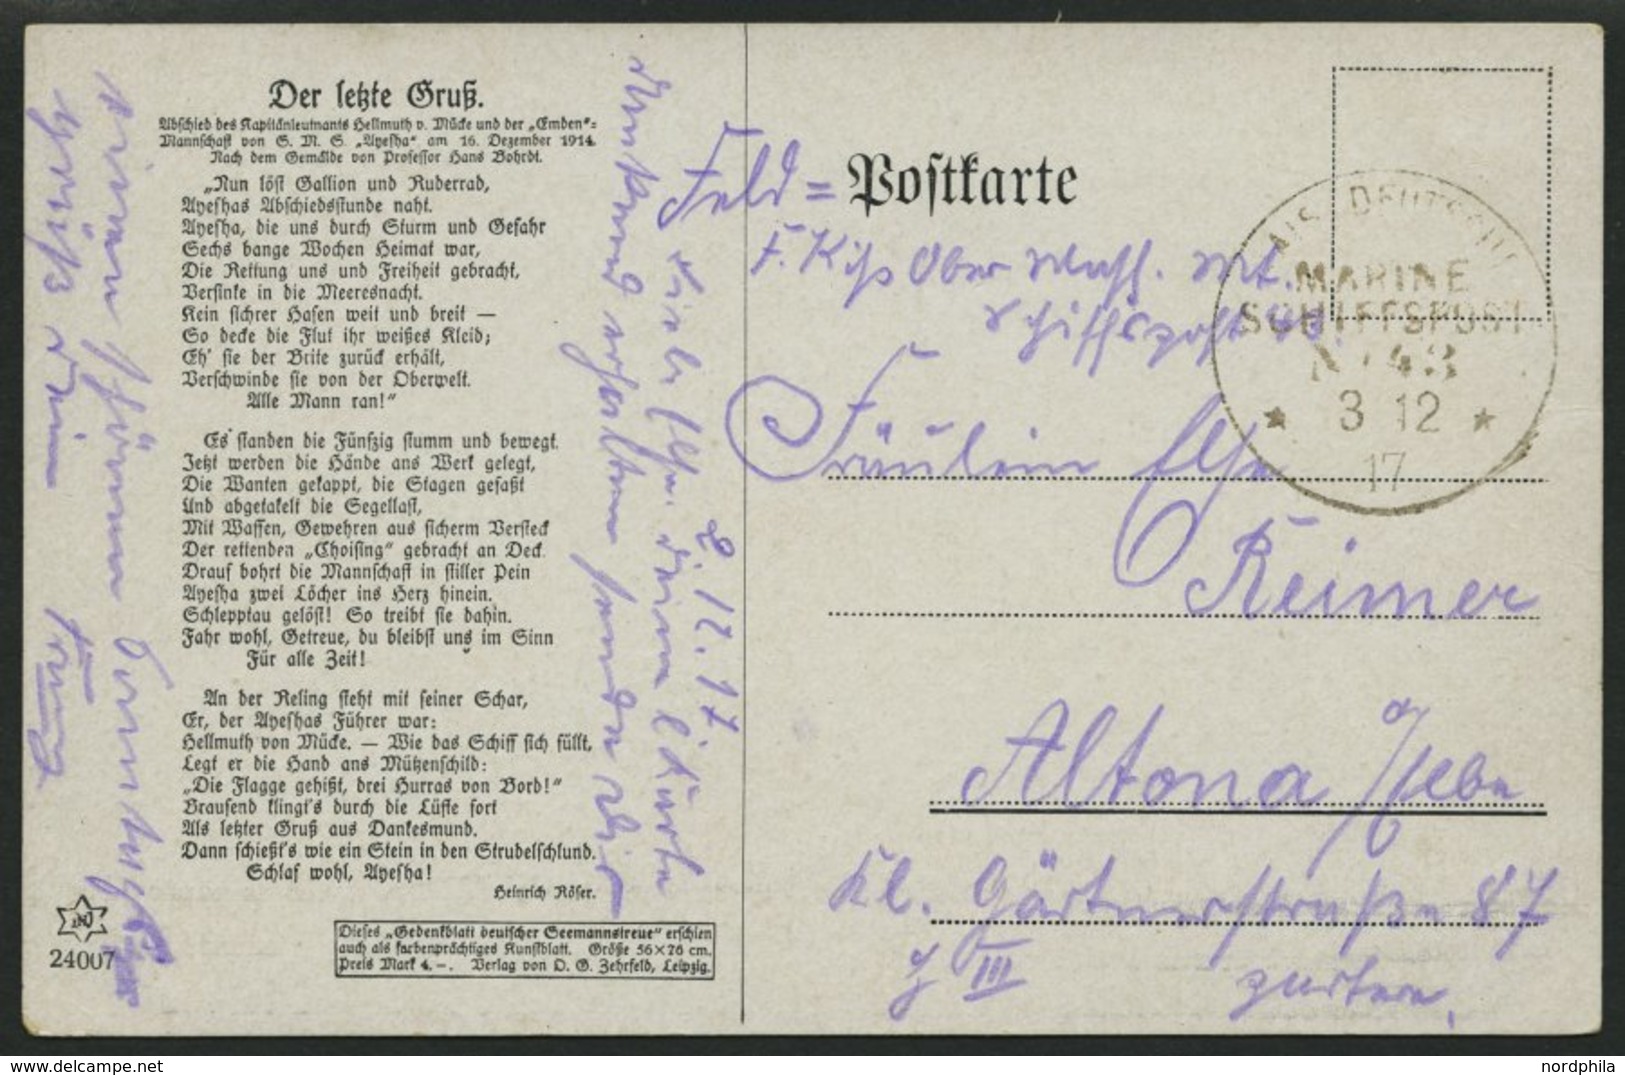 Der letzte Gruß.
Abschied des Kapitänleutnants Hellmuth v. Mücke und der „Emden"=
Mannschaft von S. M. S. „Ayesha" am 16. Dezember 1914.
Nach dem Gemälde von Professor Hans Bohrdt.
„Nun löst Gallion und Ruderrad,
Ayeshas Abschiedsstunde naht.
Ayesha, die uns durch Sturm und Gefahr
Sechs bange Wochen Heimat war,
Die Rettung uns und Freiheit gebracht,
Versinke in die Meeresnacht.
Kein sichrer Hafen weit und breit —
So decke die Flut ihr weißes Kleid;
Eh' sie der Brite zurück erhält,
Verschwinde sie von der Oberwelt.
Alle Mann ran!"
Es standen die Fünfzig stumm und bewegt.
Jetzt werden die Hände ans Werk gelegt,
Die Wanten gekappt, die Stagen gefaßt
Und abgetakelt die Segellast,
Mit Waffen, Gewehren aus sicherm Versteck
Der rettenden „Choising" gebracht an Deck.
Drauf bohrt die Mannschaft in stiller Pein
Ayesha zwei Löcher ins Herz hinein.
Schlepptau gelöst! So treibt sie dahin.
Fahr wohl, Getreue, du bleibst uns im Sinn
Für alle Zeit!
An der Reling steht mit seiner Schar,
Er, der Ayeshas Führer war:
Hellmuth von Mücke. — Wie das Schiff sich füllt,
Legt er die Hand ans Mützenschild:
„Die Flagge gehißt, drei Hurras von Bord!"
Brausend klingt's durch die Lüfte fort
Als letzter Gruß aus Dankesmund.
Dann schießt's wie ein Stein in den Strudelschlund.
Schlaf wohl, Ayesha!
Heinrich Röser.
24007
Dieses „Gedenkblatt deutscher Seemannstreue" erschien
auch als farbenprächtiges Kunstblatt. Größe 56×76 cm.
Preis Mark 4.—. Verlag von O. G. Zehrfeld, Leipzig.
2.12.17.
Liebe Else. deine l. Karte
dankend erhalten sende dir
Franz
Feld = Postkarte
Schiffspost
MARINE
SCHIFFSPOST
3 12
17
Fräulein Else
Reimer
Altona /Elbe
Kl. Gärtnerstraße 87
III